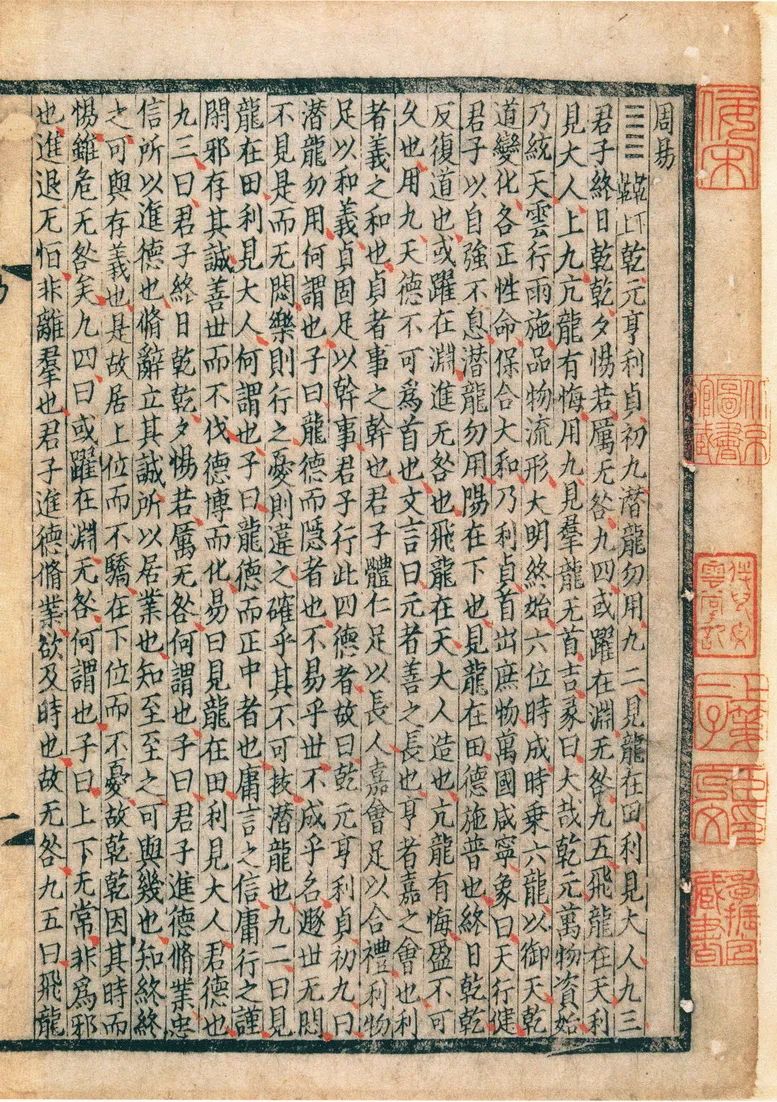 周易
䷀乾元亨利貞初九潜龍勿用九二見龍在田利見大人九三
君子終日乾乾夕惕若厲无咎九四或躍在淵无咎九五飛龍在天利
見大人上九亢龍有悔用九見羣龍无首吉彖曰大哉乾元萬物資始
乃統天雲行雨施品物流形大明終始六位時成時乗六龍以御天乾
道變化各正性命保合大和乃利貞首出庶物萬國咸寧象曰天行健
君子以自強不息潜龍勿用陽在下也見龍在田德施普也終日乾乾
反復道也或躍在淵進无咎也飛龍在天大人造也亢龍有悔盈不可
久也用九天德不可為首也文言曰元者善之長也亨者嘉之會也利
者義之和也貞者事之幹也君子體仁足以長人嘉會足以合禮利物
足以和義貞固足以幹事君子行此四德者故曰乾元亨利貞初九曰
潜龍勿用何謂也子曰龍德而隱者也不易乎丗不成乎名遯丗无悶
不見是而无悶樂則行之憂則違之確乎其不可拔潜龍也九二曰見
龍在田利見大人何謂也子曰龍德而正中者也庸言之信庸行之謹
閑邪存其誠善丗而不伐德博而化易曰見龍在田利見大人君德也
九三曰君子終日乾乾夕惕若厲无咎何謂也子曰君子進德脩業忠
信所以進德也脩辭立其誠所以居業也知至至之可與幾也知終終
之可與存義也是故居上位而不驕在下位而不憂故乾乾因其時而
惕雖危无咎矣九四曰或躍在淵无咎何謂也子曰上下无常非為邪
也進退无恒非離羣也君子進德脩業欲及時也故无咎九五曰飛龍